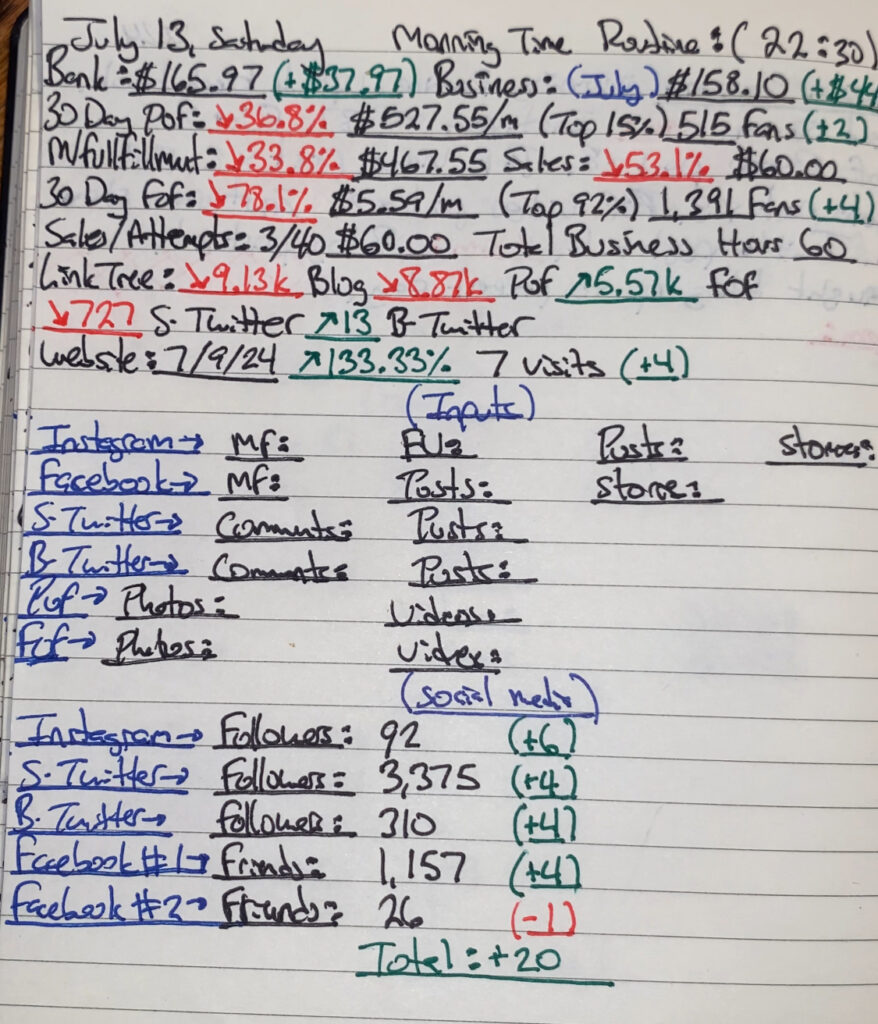 July 13, Saturday Morning Time Routine: (22:30)
Bank: $165.97 (+$37.97) Business: (July) $158.10 (+$44
30 Day Pof: ↘36.8% $527.55/m (Top 15%) 515 Fans (+2)
N/fullfillment: ↘33.8% $467.55 Sales: ↘53.1% $60.00
30 Day Fof: ↘78.1% $5.59/m (Top 92%) 1,391 Fans (+4)
Sales/Attempts: 3/40 $60.00 Total Business Hours 60
LinkTree: ↘9.13k Blog ↘8.87k Pof ↗5.57k fof
↘727 S-Twitter ↗13 B-Twitter
Website: 7/9/24 ↗133.33% 7 visits (+4)
(Inputs)
Instagram→ MF: FU: Posts: Stories:
Facebook→ MF: Posts: Stories:
S-Twitter→ Comments: Posts:
B-Twitter→ Comments: Posts:
Pof→ Photos: Videos:
Fof→ Photos: Videos:
(Social media)
Instagram→ Followers: 92 (+6)
S-Twitter→ Followers: 3,375 (+4)
B-Twitter→ followers: 310 (+4)
Facebook#1→ Friends: 1,157 (+4)
Facebook #2→ Friends: 26 (-1)
Total: +20